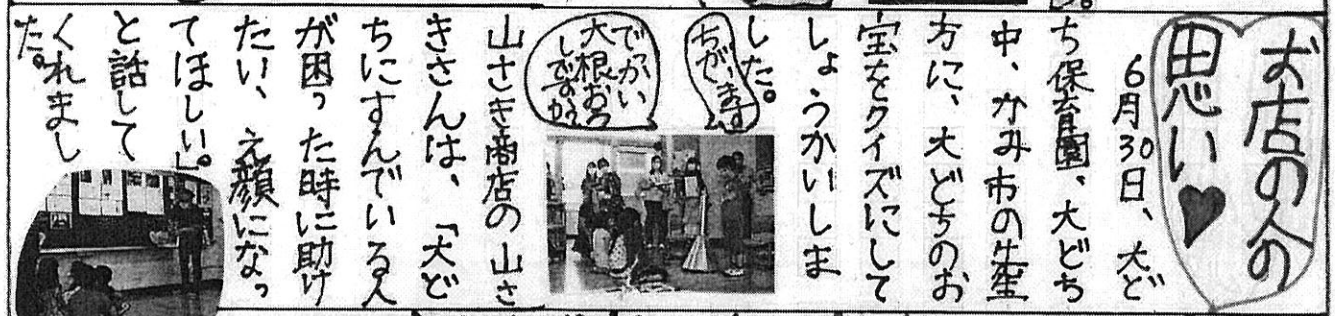 お店の人の
思い♥
6月30日、大ど
ち保育園、大どち
中、かみ市の先生
方に、大どちのお
宝をクイズにして
しょうかいしま
した。
ちがいます
でっかい
大根おろ
しですか?
山さき商店の山さ
きさんは、「大ど
ちにすんでいる人
が困った時に助け
たい、え顔になっ
てほしい。」
と話して
くれまし
た。